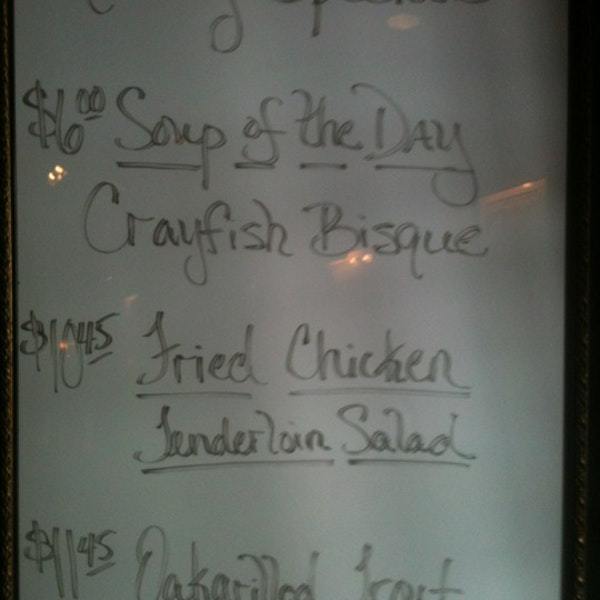 $6.00 Soup of the DAY
Crayfish Bisque
$10.45 Fried Chicken
Tenderloin Salad
$11.45 Oakgrilled Trout